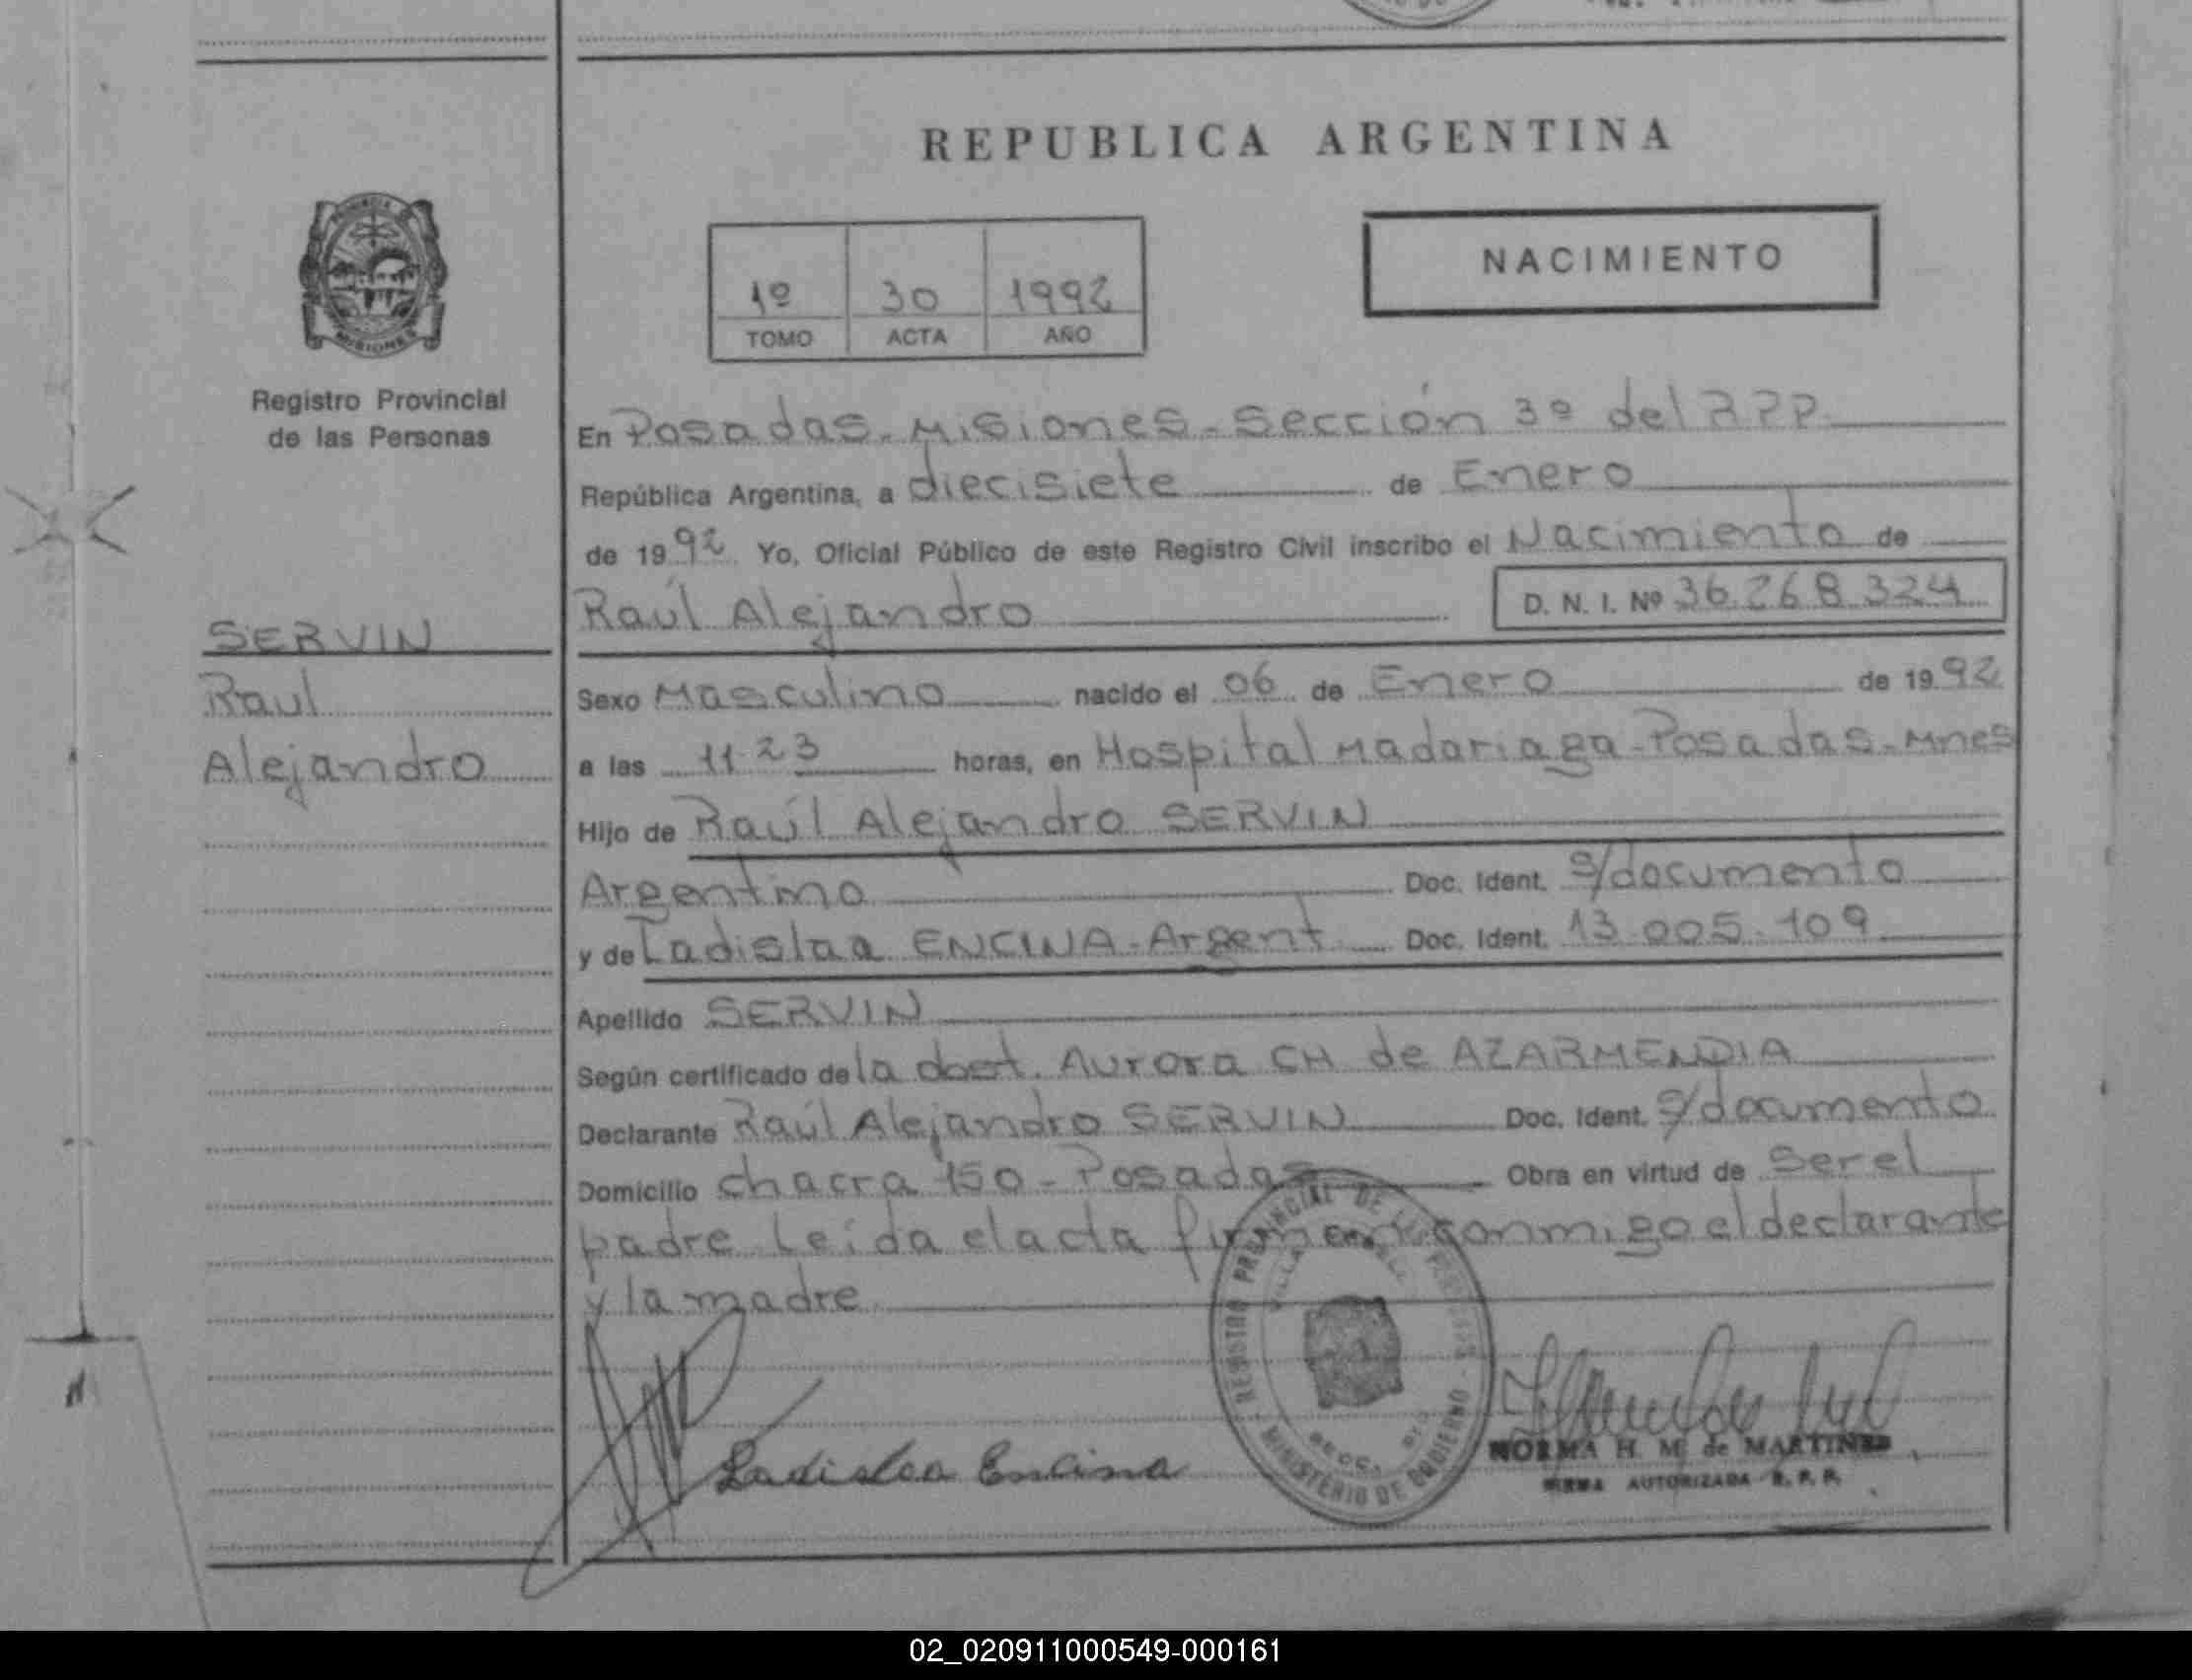 REPUBLICA ARGENTINA
NACIMIENTO
1º 30 1992
TOMO ACTA AÑO
PROVINCIA DE
MISIONES
Registro Provincial
de las Personas
SERVIN
Raul
Alejandro
En Posadas-Misiones-Sección 3º del RPP
República Argentina, a diecisiete de Enero
de 1992 Yo, Oficial Público de este Registro Civil inscribo el Nacimiento de
Raúl Alejandro D. N. I. Nº 36.268.324
Sexo Masculino nacido el 06 de Enero de 1992
a las 11-23 horas, en Hospital Madariaga-Posadas-Mnes
Hijo de Raúl Alejandro SERVIN
Argentino Doc. Ident. s/documento
y de Ladislaa ENCINA-Argent. Doc. Ident. 13.005.109
Apellido SERVIN
Según certificado de la doct. Aurora CH de AZARMENDIA
Declarante Raúl Alejandro SERVIN Doc. Ident. s/documento
Domicilio chacra 150-Posadas Obra en virtud de Ser el
padre Leída el acta firman conmigo el declarante
y la madre
Ladislaa Encina
REGISTRO PROVINCIAL DE LAS PERSONAS
MINISTERIO DE GOBIERNO
NORMA H. M. de MARTINEZ
FIRMA AUTORIZADA R. P. P.
02_020911000549-000161